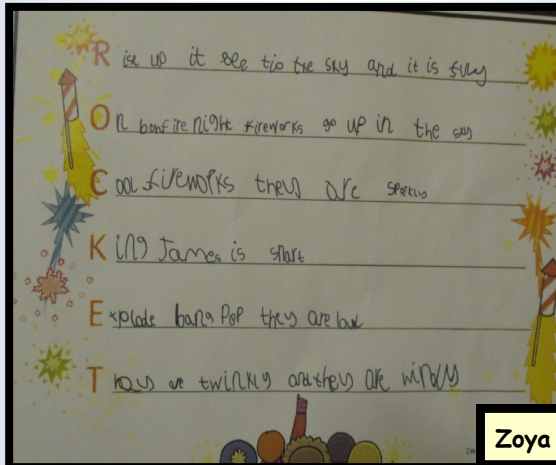 Rise up it see tio the sky and it is
On bonfire night fireworks go up in the sey
Cool fireworks they are sparkly
King James is smart
Explode bang pop they are
They are twinkly and they are windy
Zoya